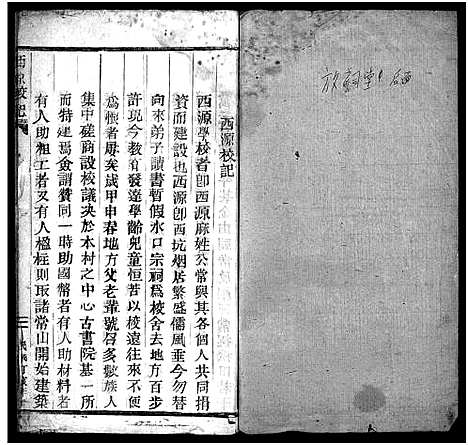 放祠堂
西源校記
西源學校者卽西源麻姓公常與其各個人共同捐
資而建設也西源卽西坑烟居繁盛儒風垂今勿替
向來弟子讀書暫假水口宗祠爲校舍去地方百步
許現今教育發達學齡兒童恒苦以校遠往來不便
爲慨者毋矣歲甲申春地方父老輩號召多數族人
集中磋商設校議決於本村之中心古書院基一所
而特建焉僉謂贊同一時助國幣者有人助材料者
有人助粗工者又有人楹柱則取諸常山開始建築
西源校記